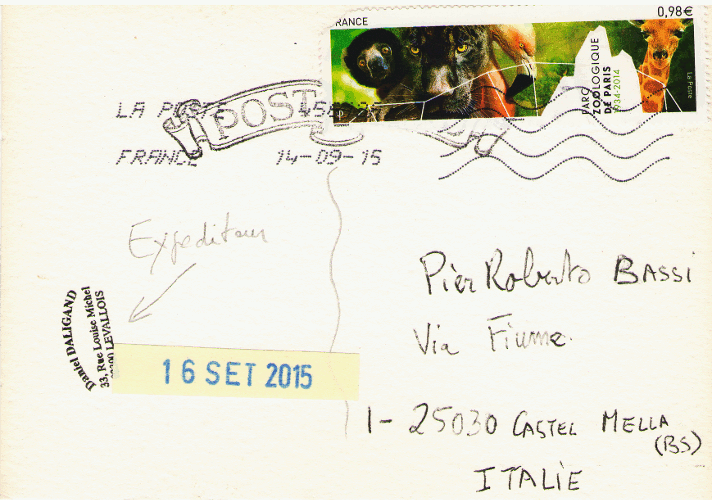 FRANCE
0,98€
PARC
ZOOLOGIQUE
DE PARIS
1934-2014
La Poste
LA POSTE
POST
FRANCE 14-09-15
Expediteur
Daniel DALIGAND
33, Rue Louise Michel
LEVALLOIS
16 SET 2015
Pier Roberto BASSI
Via Fiume
I- 25030 CASTEL MELLA
(BS)
ITALIE